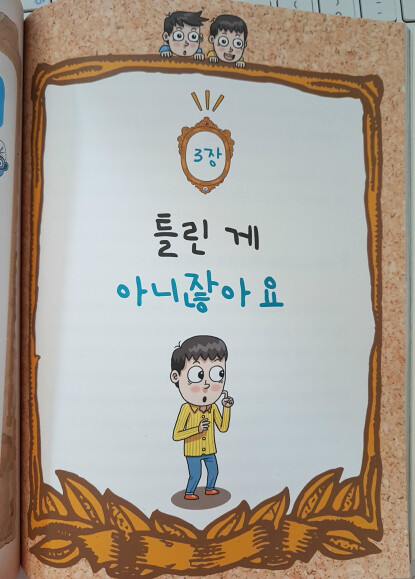 3장
틀린 게
아니잖아요